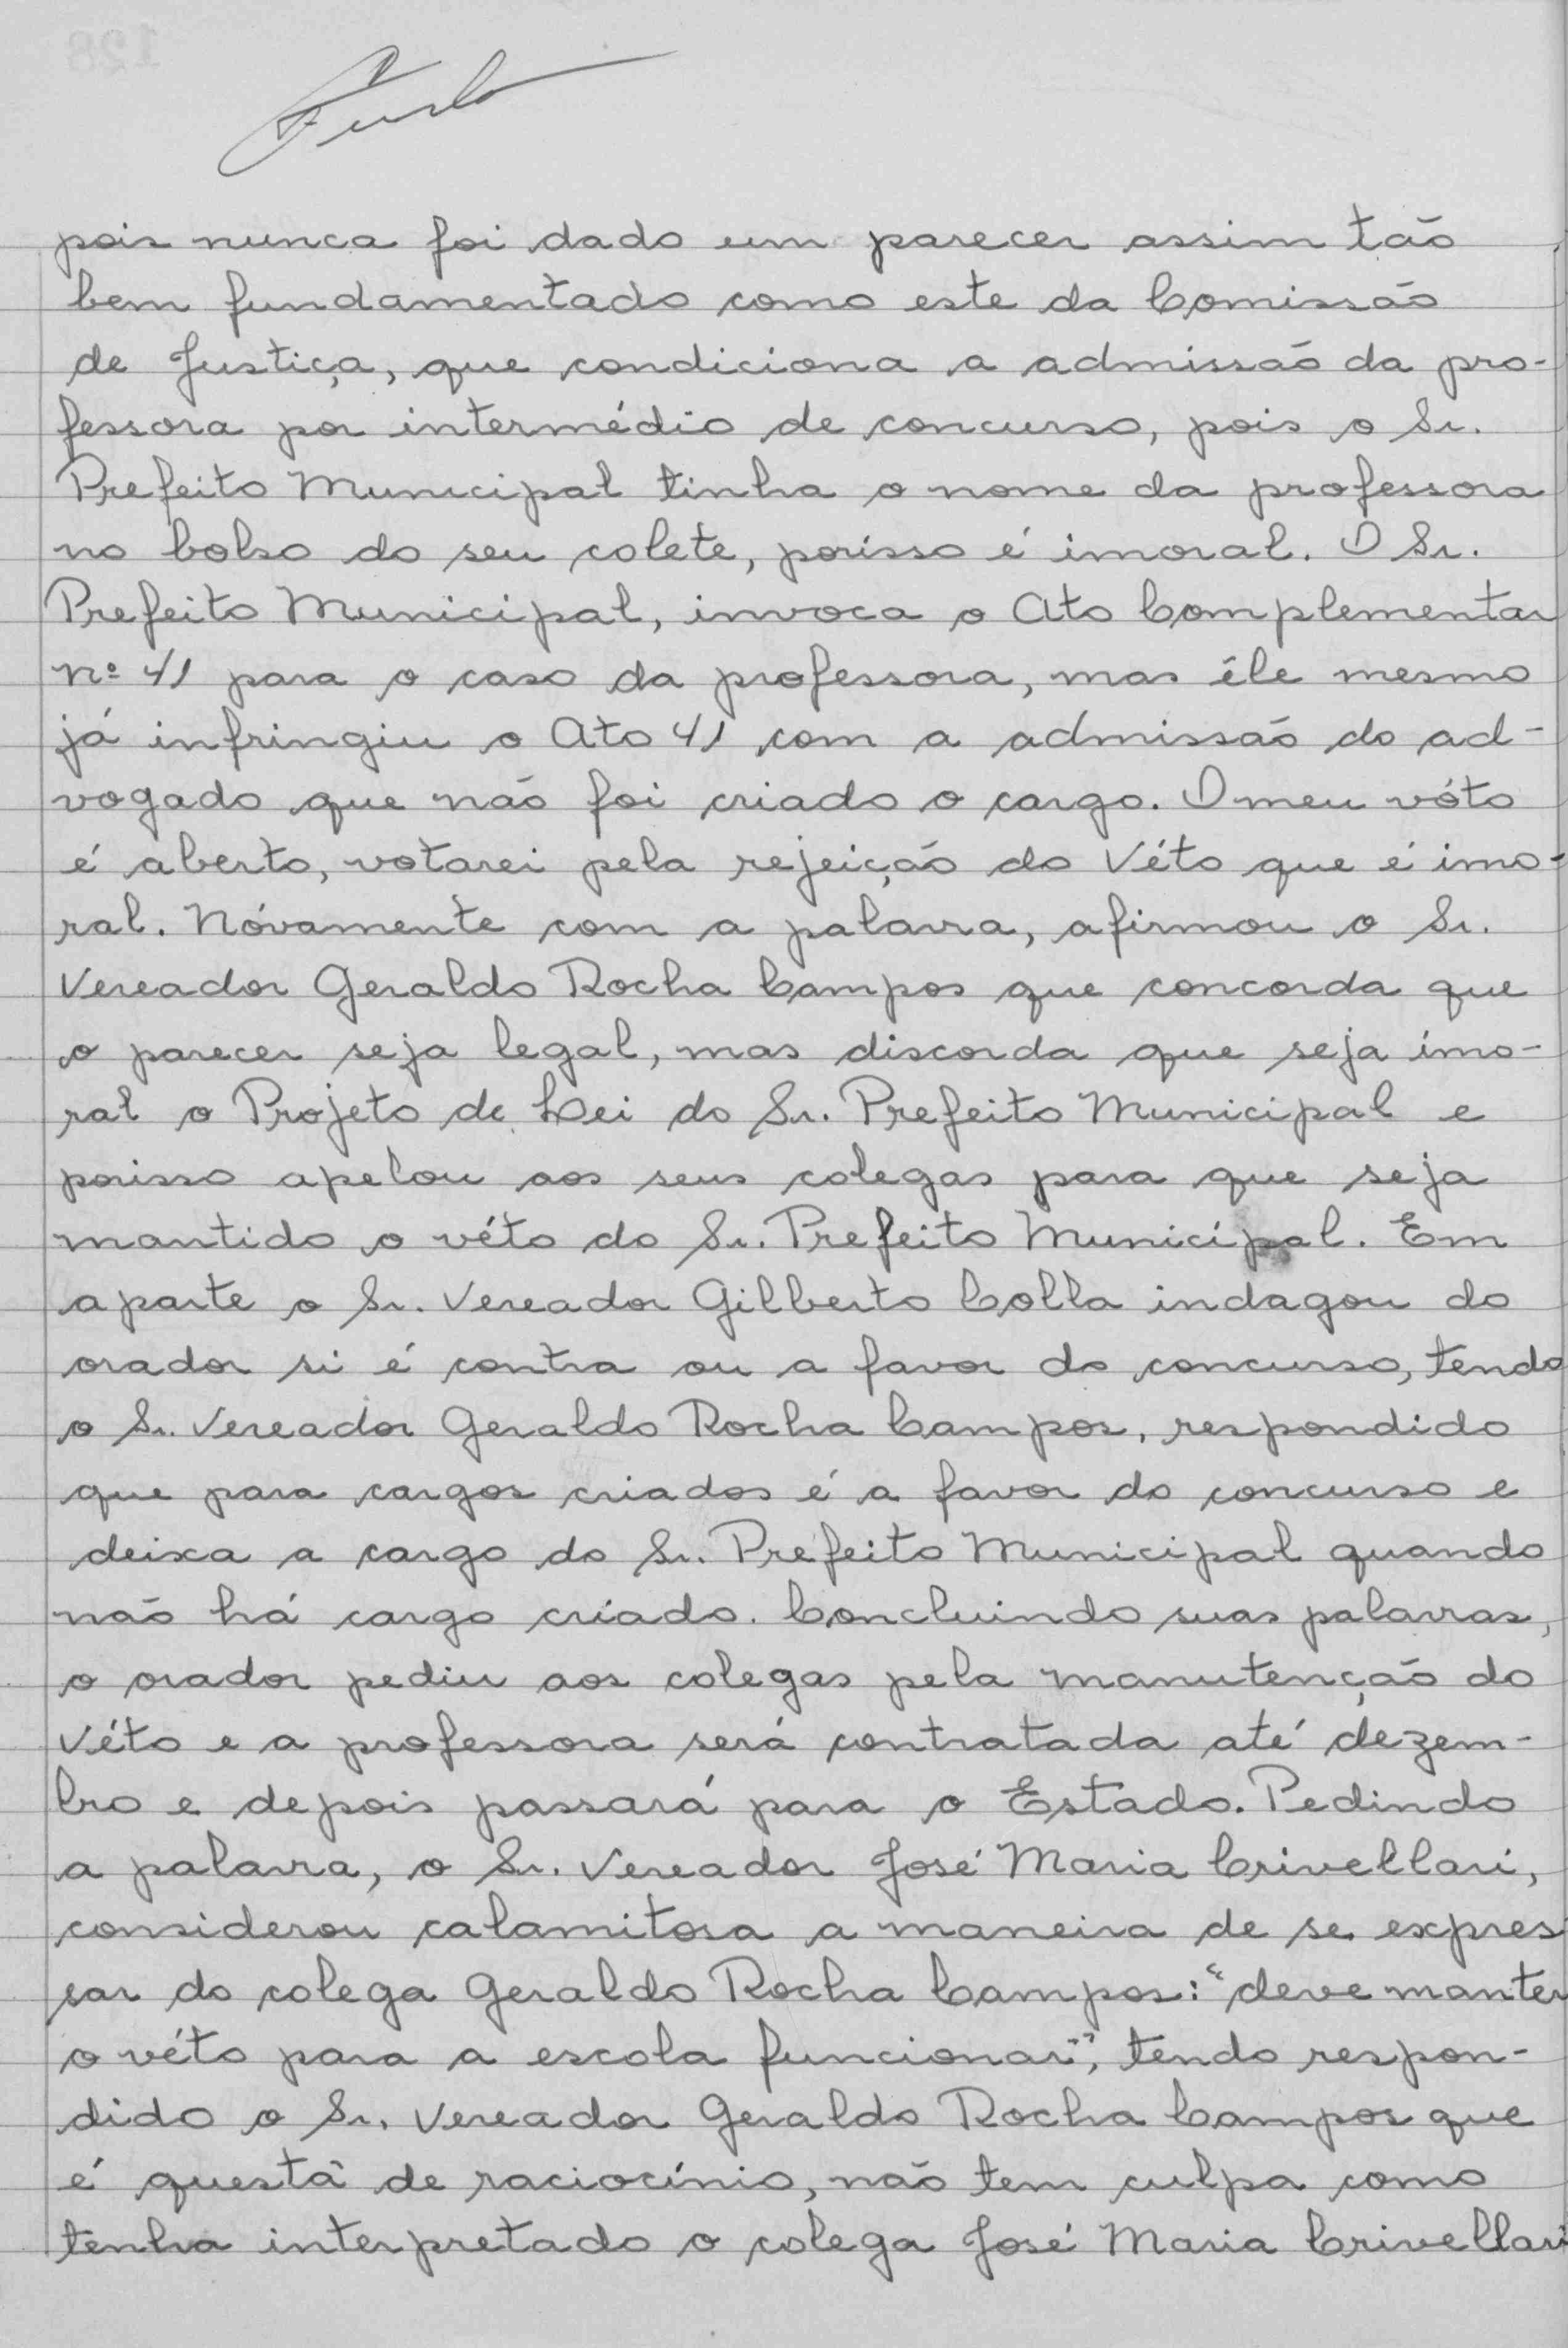 pois nunca foi dado um parecer assim tão
bem fundamentado como este da Comissão
de Justiça, que condiciona a admissão da pro-
fessora por intermédio de concurso, pois o Sr.
Prefeito Municipal tinha o nome da professora
no bolso do seu colete, porisso é imoral. O Sr.
Prefeito Municipal, invoca o Ato Complementar
nº 41 para o caso da professora, mas êle mesmo
já infringiu o Ato 41 com a admissão do ad-
vogado que não foi criado o cargo. O meu vóto
é aberto, votarei pela rejeição do Véto que é imo-
ral. Nóvamente com a palavra, afirmou o Sr.
Vereador Geraldo Rocha Campos que concorda que
o parecer seja legal, mas discorda que seja imo-
ral o Projeto de Lei do Sr. Prefeito Municipal e
porisso apelou aos seus colegas para que seja
mantido o véto do Sr. Prefeito Municipal. Em
aparte o Sr. Vereador Gilberto Colla indagou do
orador si é contra ou a favor do concurso, tendo
o Sr. Vereador Geraldo Rocha Campos, respondido
que para cargos criados é a favor do concurso e
deixa a cargo do Sr. Prefeito Municipal quando
não há cargo criado. Concluindo suas palavras,
o orador pediu aos colegas pela manutenção do
Véto e a professora será contratada até dezem-
bro e depois passará para o Estado. Pedindo
a palavra, o Sr. Vereador José Maria Crivellari,
considerou calamitosa a maneira de se expres
sar do colega Geraldo Rocha Campos: "deve manter
o véto para a escola funcionar", tendo respon-
dido o Sr. Vereador Geraldo Rocha Campos que
é questã de raciocínio, não tem culpa como
tenha interpretado o colega José Maria Crivellari